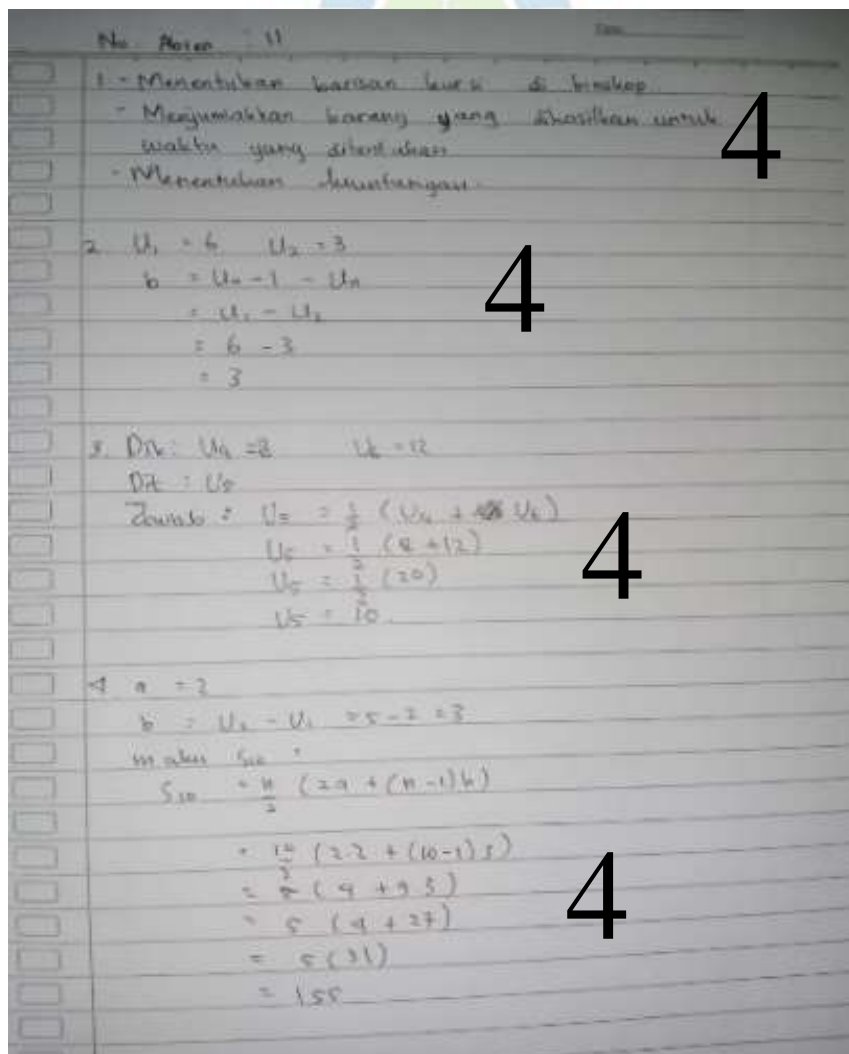 No. Absen : 11
1. - Menentukan barisan kursi di bioskop.
- Menjumlahkan barang yang dihasilkan untuk
waktu yang ditentukan
- Menentukan keuntungan.
4
2. U₁ = 6 U₂ = 3
b = Uₙ - 1 - Uₙ
= U₁ - U₂
= 6 - 3
= 3
4
3. Dik : U₄ = 8 U₆ = 12
Dit : U₅
Jawab : U₅ = 1/2 (U₄ + U₆)
U₅ = 1/2 (8 + 12)
U₅ = 1/2 (20)
U₅ = 10
4
4 a = 2
b = U₂ - U₁ = 5 - 2 = 3
maka S₁₀ :
S₁₀ = n/2 (2a + (n-1)b)
= 10/2 (2.2 + (10-1)3)
= 5 (4 + 9.3)
= 5 (4 + 27)
= 5 (31)
= 155
4